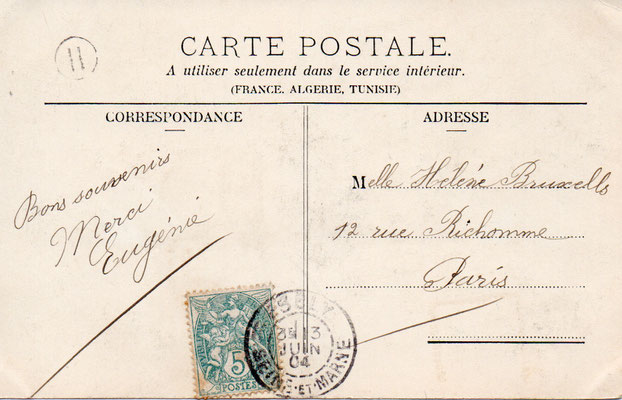 CARTE POSTALE.
A utiliser seulement dans le service intérieur.
(FRANCE. ALGERIE, TUNISIE)
CORRESPONDANCE
ADRESSE
Bons souvenirs
Merci
Eugénie
Melle Helène Bruxells
12 rue Richomme
Paris
5
POSTES
13
JUIN
04
SEINE-ET-MARNE
H